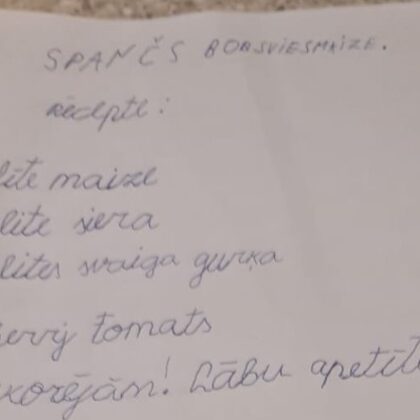 SPANČS BOBSVIESMAIZE.
Recepte:
lite maize
lite siera
lites svaiga gurķa
tomats
korējām! Labu apetīte